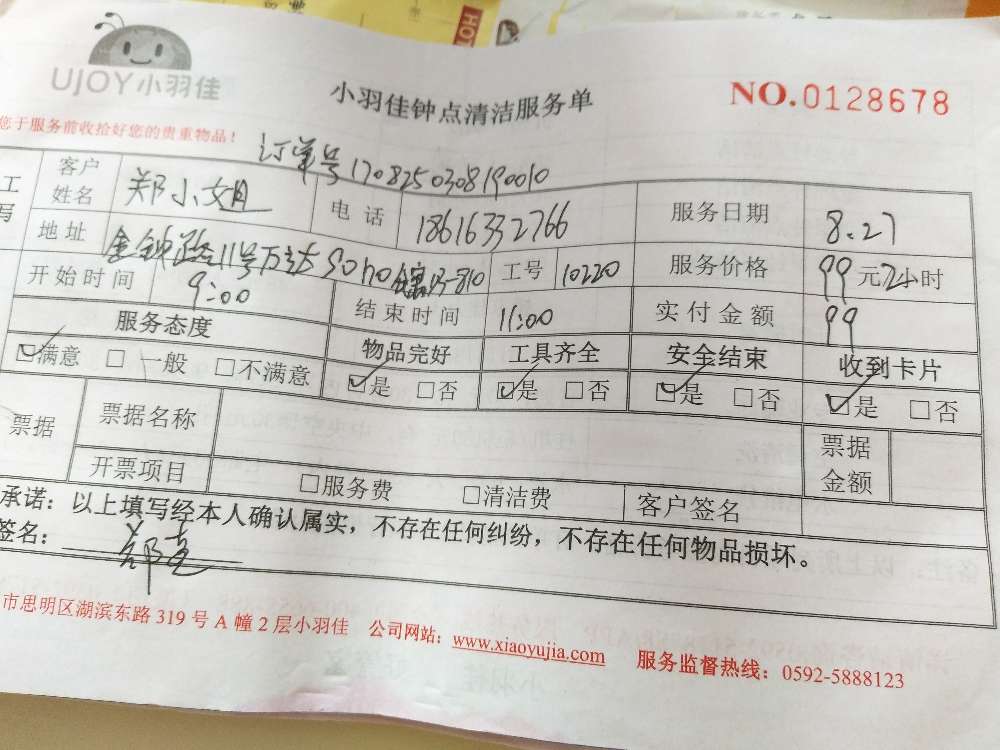 HOT
UJOY小羽佳
小羽佳钟点清洁服务单
NO.0128678
您于服务前收拾好您的贵重物品！
订单号1708250308190010
工
写
客户姓名 郑小姐 电话 18616332766 服务日期 8.27
地址 金钟路11号万达SOHO 810 工号 10220 服务价格 99元2小时
开始时间 9:00 结束时间 11:00 实付金额 99
服务态度 物品完好 工具齐全 安全结束 收到卡片
☑满意 □一般 □不满意 ☑是 □否 ☑是 □否 ☑是 □否 ☑是 □否
票据 票据名称 票据金额
开票项目 □服务费 □清洁费 客户签名
承诺：以上填写经本人确认属实，不存在任何纠纷，不存在任何物品损坏。
签名：
市思明区湖滨东路 319 号 A 幢 2 层小羽佳 公司网站：www.xiaoyujia.com 服务监督热线：0592-5888123